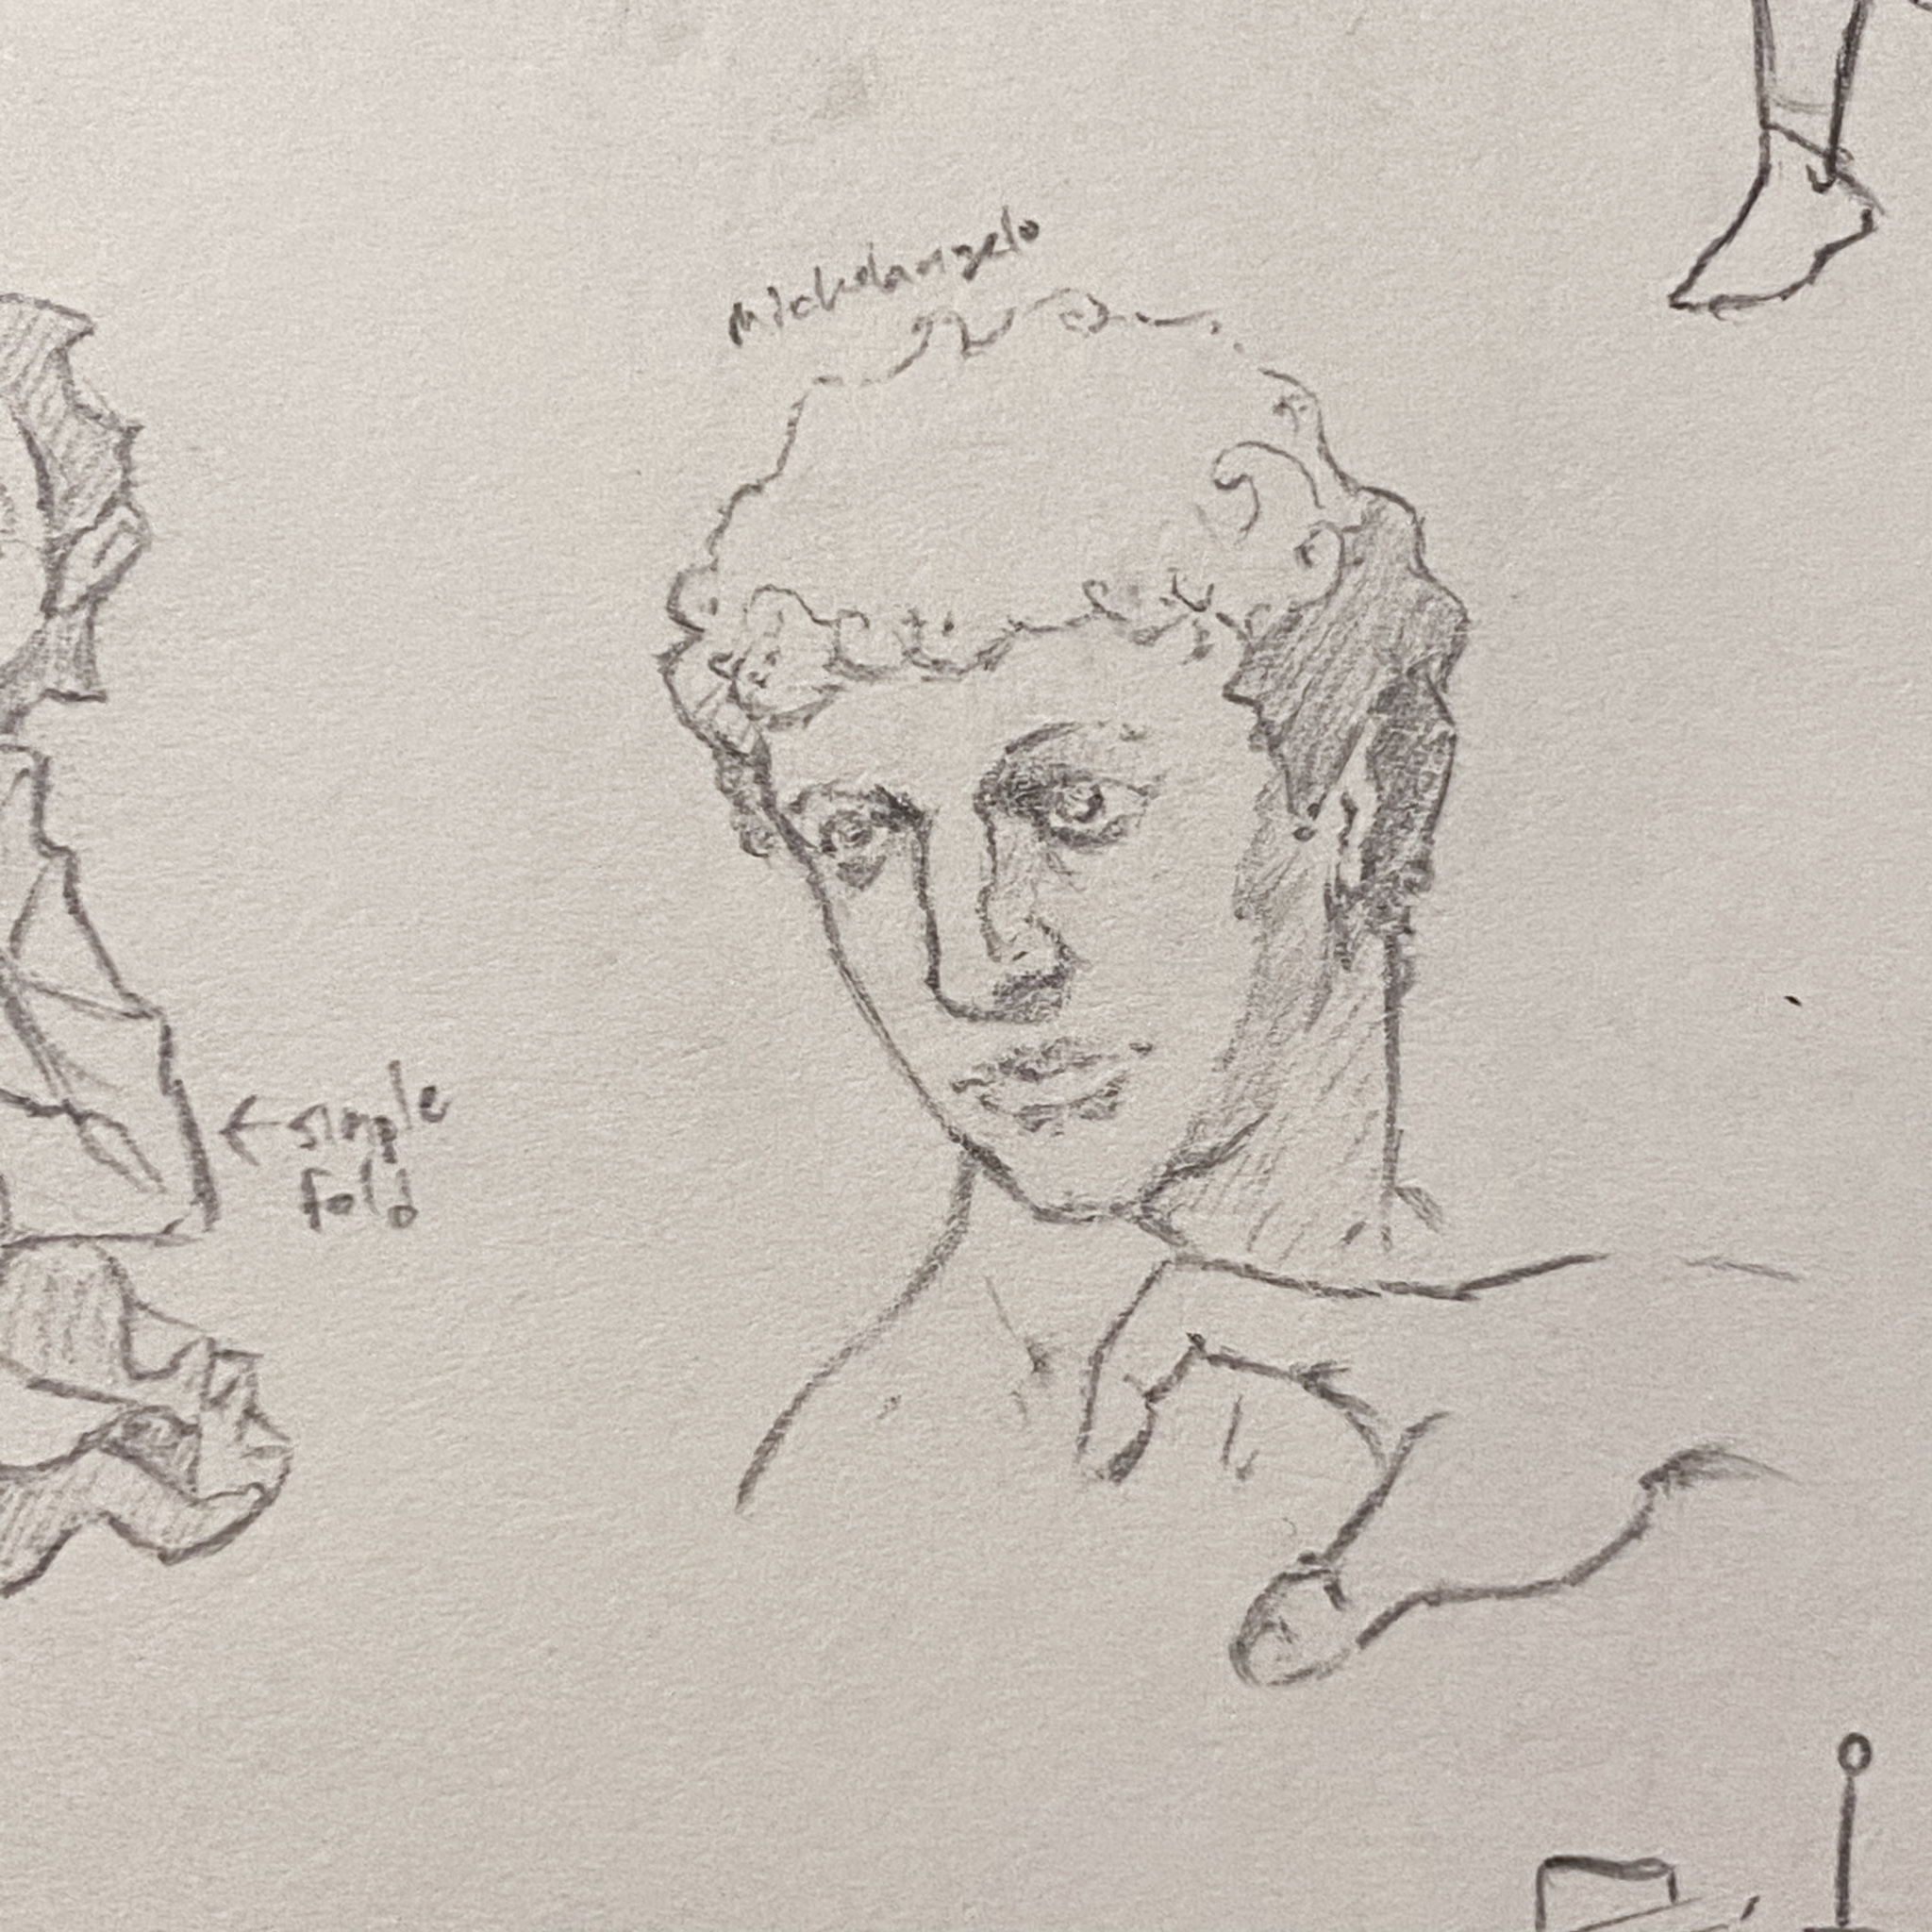 Michelangelo
← simple
fold